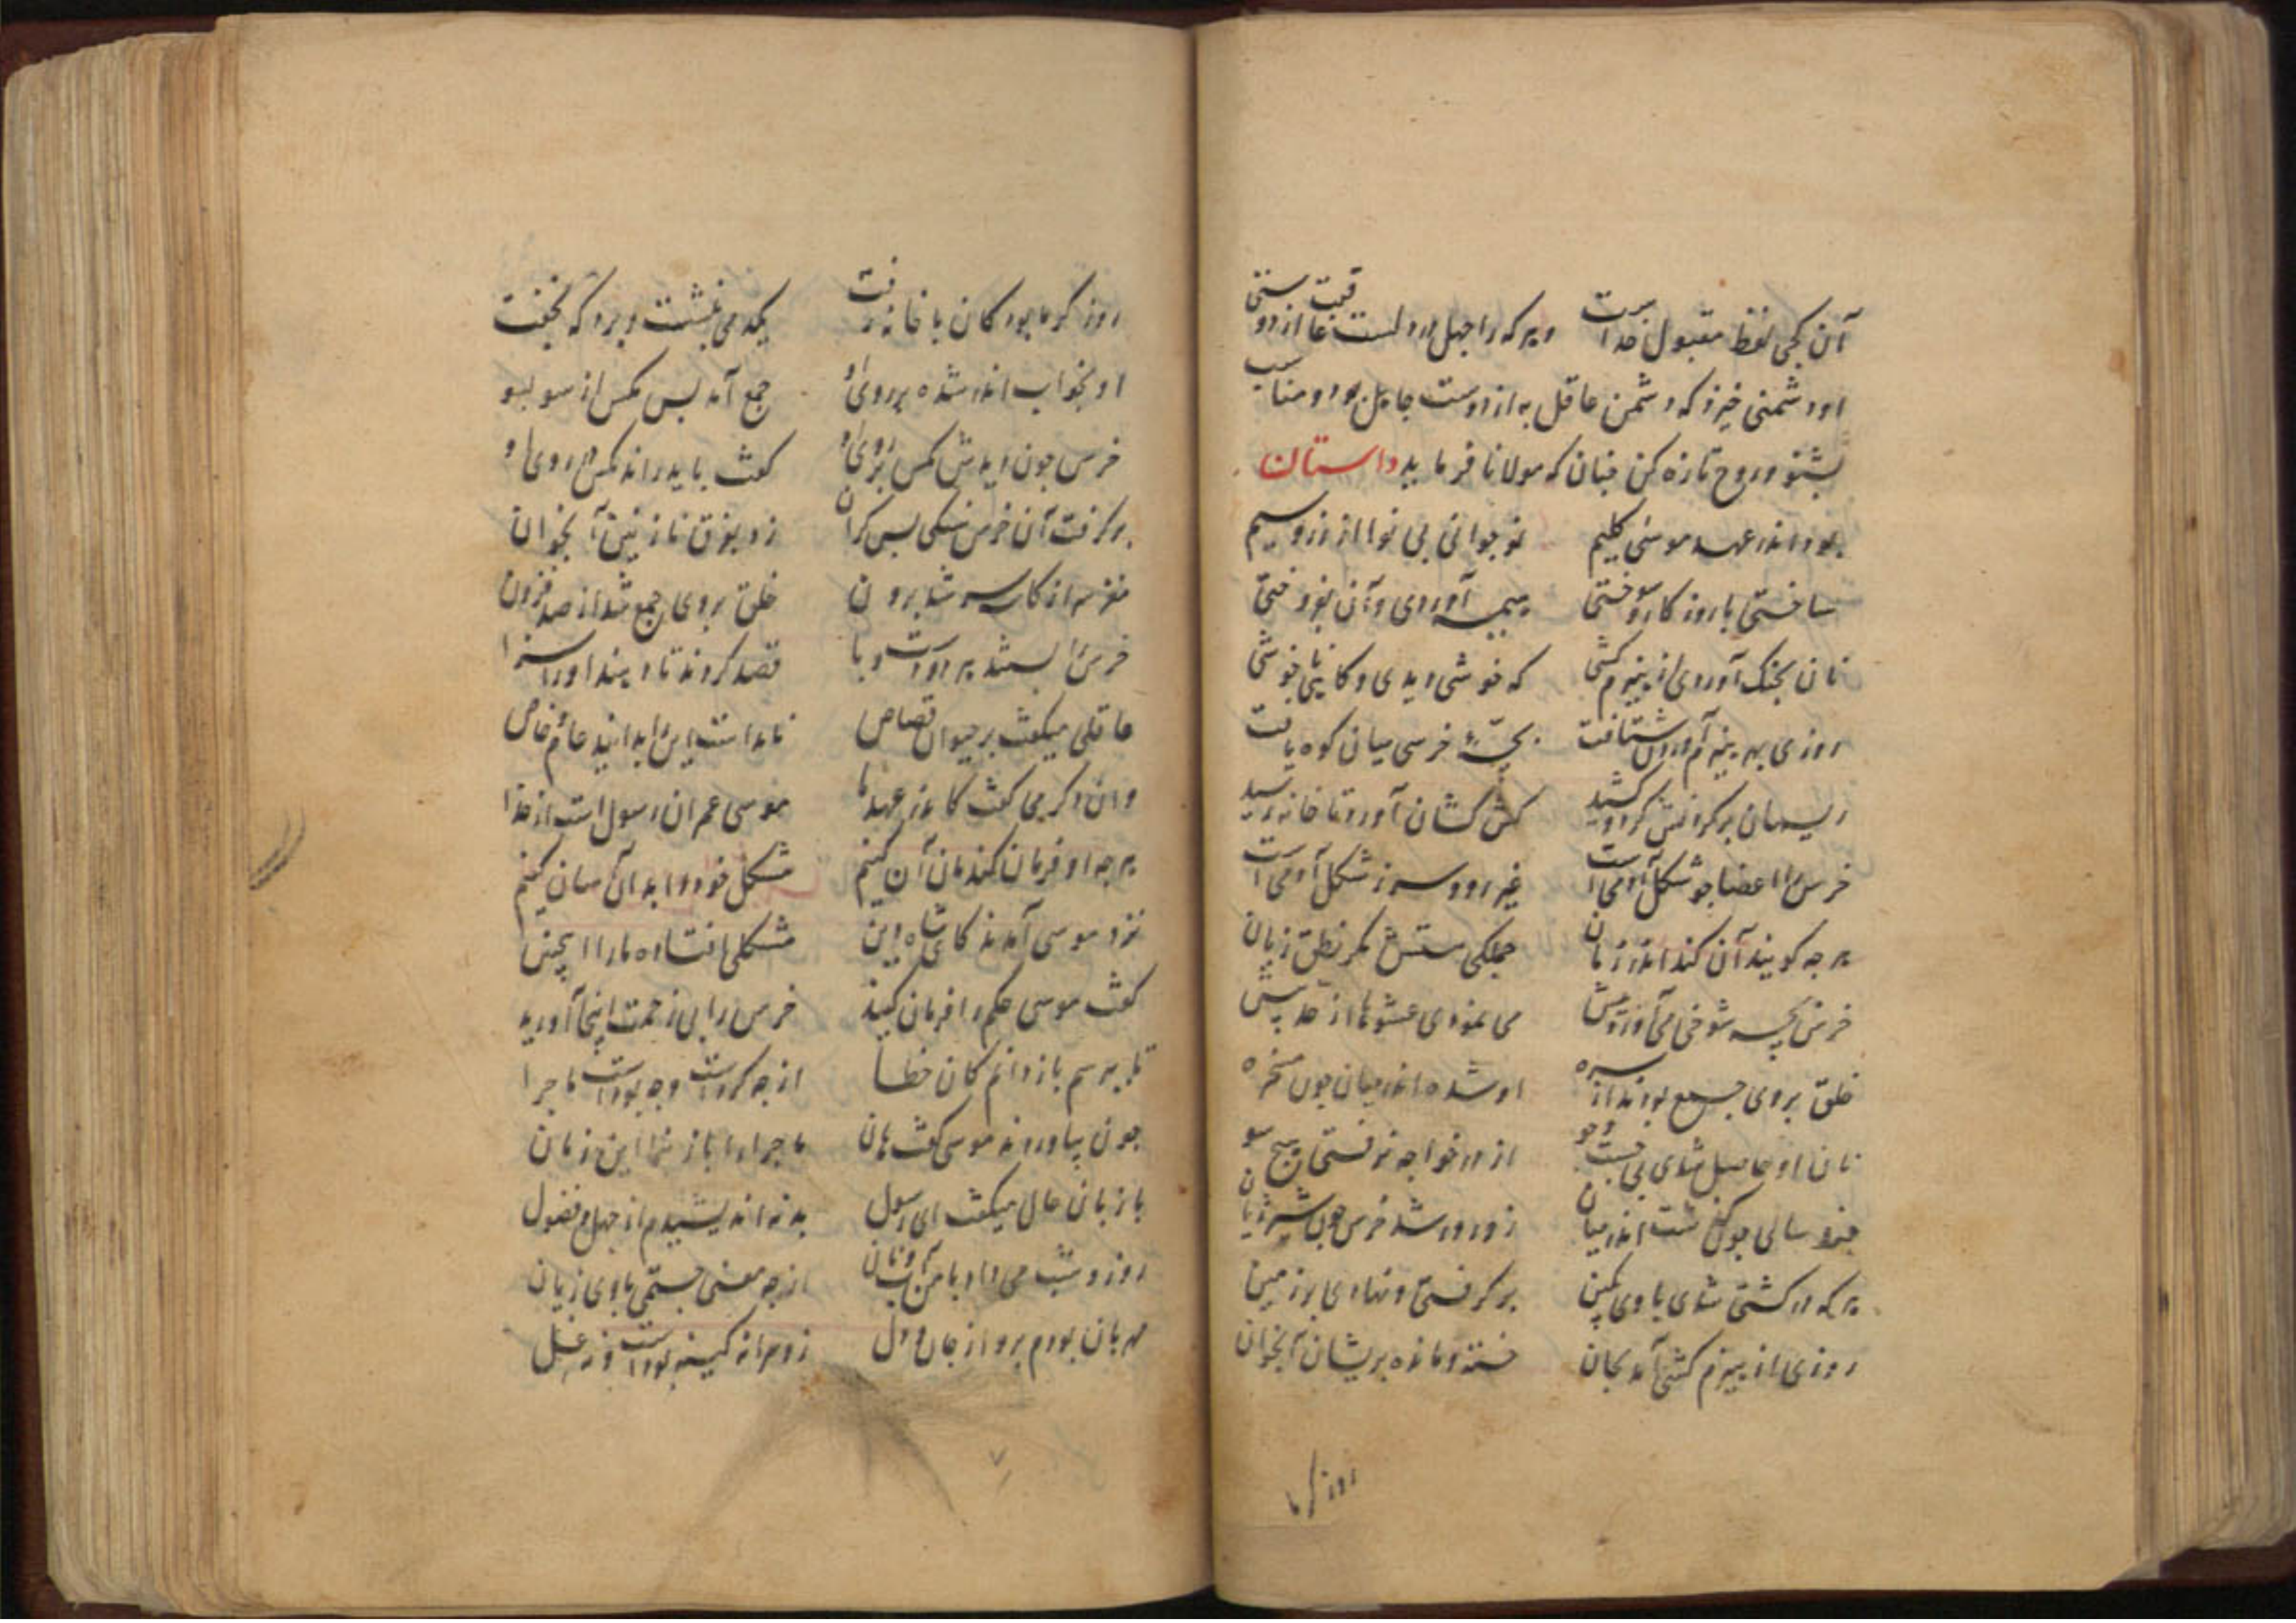 آن کجی لفظ مقبول خداست وهرکه را جهل در دلست عاقبت از دوستی
او دشمنی خیزد که دشمن عاقل به از دوست جاهل بود و مناسب
بشنو و روح تازه کن چنان که مولانا فرماید داستان
بود اندر عهد موسی کلیم نوجوانی بی نوا از زر و سیم
ساختی با روزکار و سوختی هیمه آوردی و آن بفروختی
نان بچنک آوردی از هیزم کشی که خوشی دیدی و کاهی ناخوشی
روزی بهر هیزم آوردن شتافت بچهٔ خرسی میان کوه یافت
ریسمان بر کردنش کرد و کشید کش کشان آورد تا خانه رسید
خرس را اعضا جو شکل آدمی است غیر رو و سر ز شکل آدمی است
هرجه کویند آن کند اندر زمان جملکی هستش مکر نطق زبان
خرس بچه شوخی می آورد پیش می نمودی عشوها از حد بیش
خلق بر وی جمع بودند از سره او شده اندر میان چون مسخره
نان او حاصل شدی بی جست و جو از در خواجه نرفتی هیچ سو
چند سالی جو کذشت اندر میان زورور شد خرس چون شیر ژیان
هرکه در کشتی شدی با وی بکین برکرفتی و نهادی بر زمین
روزی از هیزم کشی آمد بجان خسته و مانده پریشان آنجوان
روز کرما
روز کرما بود کان با خانه رفت یکدمی بنشست و بر درکه بخفت
او بخواب اندر شده بر روی او جمع آمد بس مکس از سو بسو
خرس چون دیدش مکس بر روی او کفت باید راند مکس از روی او
برکرفت آن خرس سنکی بس کران زد بفرق نازنین آنجوان
مغزش از کاسه سر شد برون خلق بر وی جمع شد از صد فزون
خرس را بستند هر دو دست و پا قصد کردند تا دهند او را سزا
عاقلی میکفت بر حیوان قصاص نامداست این را بدانید عام و خاص
وان دکر می کفت کاندر عهد ما موسی عمران رسول است از خدا
هرجه او فرمان کند مان آن کنیم مشکل خود را بدان آسان کنیم
نزد موسی آمدند کای شاه دین مشکلی افتاده ما را اینچنین
کفت موسی حکم را فرمان کنید خرس را بی زحمت اینجا آورید
تا بپرسم باز دانم کان خطا از چه کردست و چه بودست ماجرا
چون بیاوردند موسی کفت هان ماجرا را باز نما این زمان
با زبان حال میکفت ای رسول بد نه اندیشیدم از جهل و فضول
روز و شب می داد با من آب و نان از چه معنی جستمی با وی زیان
مهربان بودم برو از جان و دل زو مرا نه کینه بودست و نه غل